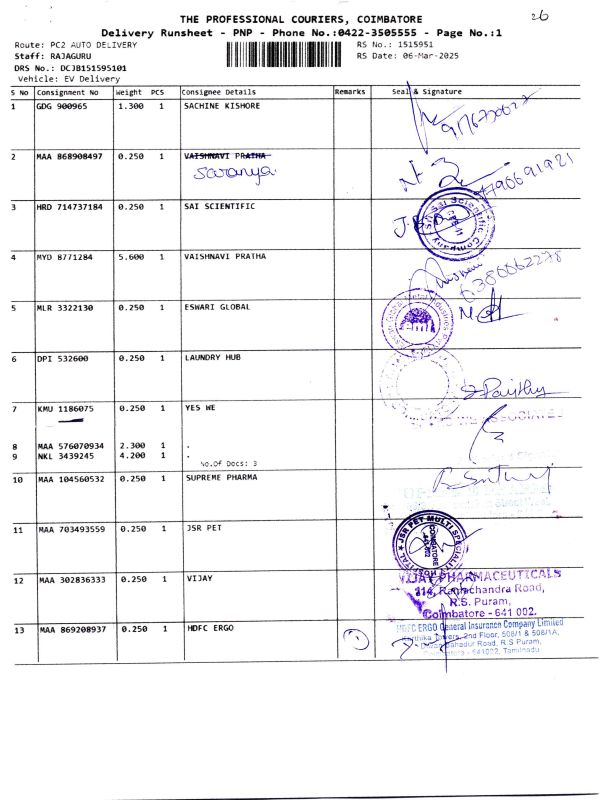 THE PROFESSIONAL COURIERS, COIMBATORE
26
Delivery Runsheet - PNP - Phone No.:0422-3505555 - Page No.:1
Route: PC2 AUTO DELIVERY RS No.: 1515951
Staff: RAJAGURU RS Date: 06-Mar-2025
DRS No.: DCJB151595101
Vehicle: EV Delivery
S No Consignment No Weight PCS Consignee Details Remarks Seal & Signature
1 GDG 900965 1.300 1 SACHINE KISHORE
2 MAA 868908497 0.250 1 VAISHNAVI PRATHA
Saranya
3 HRD 714737184 0.250 1 SAI SCIENTIFIC
Sri Sai Scientific Company
4 MYD 8771284 5.600 1 VAISHNAVI PRATHA
5 MLR 3322130 0.250 1 ESWARI GLOBAL
6 DPI 532600 0.250 1 LAUNDRY HUB
7 KMU 1186075 0.250 1 YES WE
8 MAA 576070934 2.300 1 .
9 NKL 3439245 4.200 1 .
No.Of Docs: 3
10 MAA 104560532 0.250 1 SUPREME PHARMA
11 MAA 703493559 0.250 1 JSR PET
JSR PET MULTI SPECIALITY HOSPITAL
COIMBATORE
12 MAA 302836333 0.250 1 VIJAY
VIJAY PHARMACEUTICALS
314, Ramachandra Road,
R.S. Puram,
Coimbatore - 641 002.
13 MAA 869208937 0.250 1 HDFC ERGO
1
HDFC ERGO General Insurance Company Limited
Karthika Towers, 2nd Floor, 508/1 & 508/1A,
Bahadur Road, R.S Puram,
- 641002, Tamilnadu